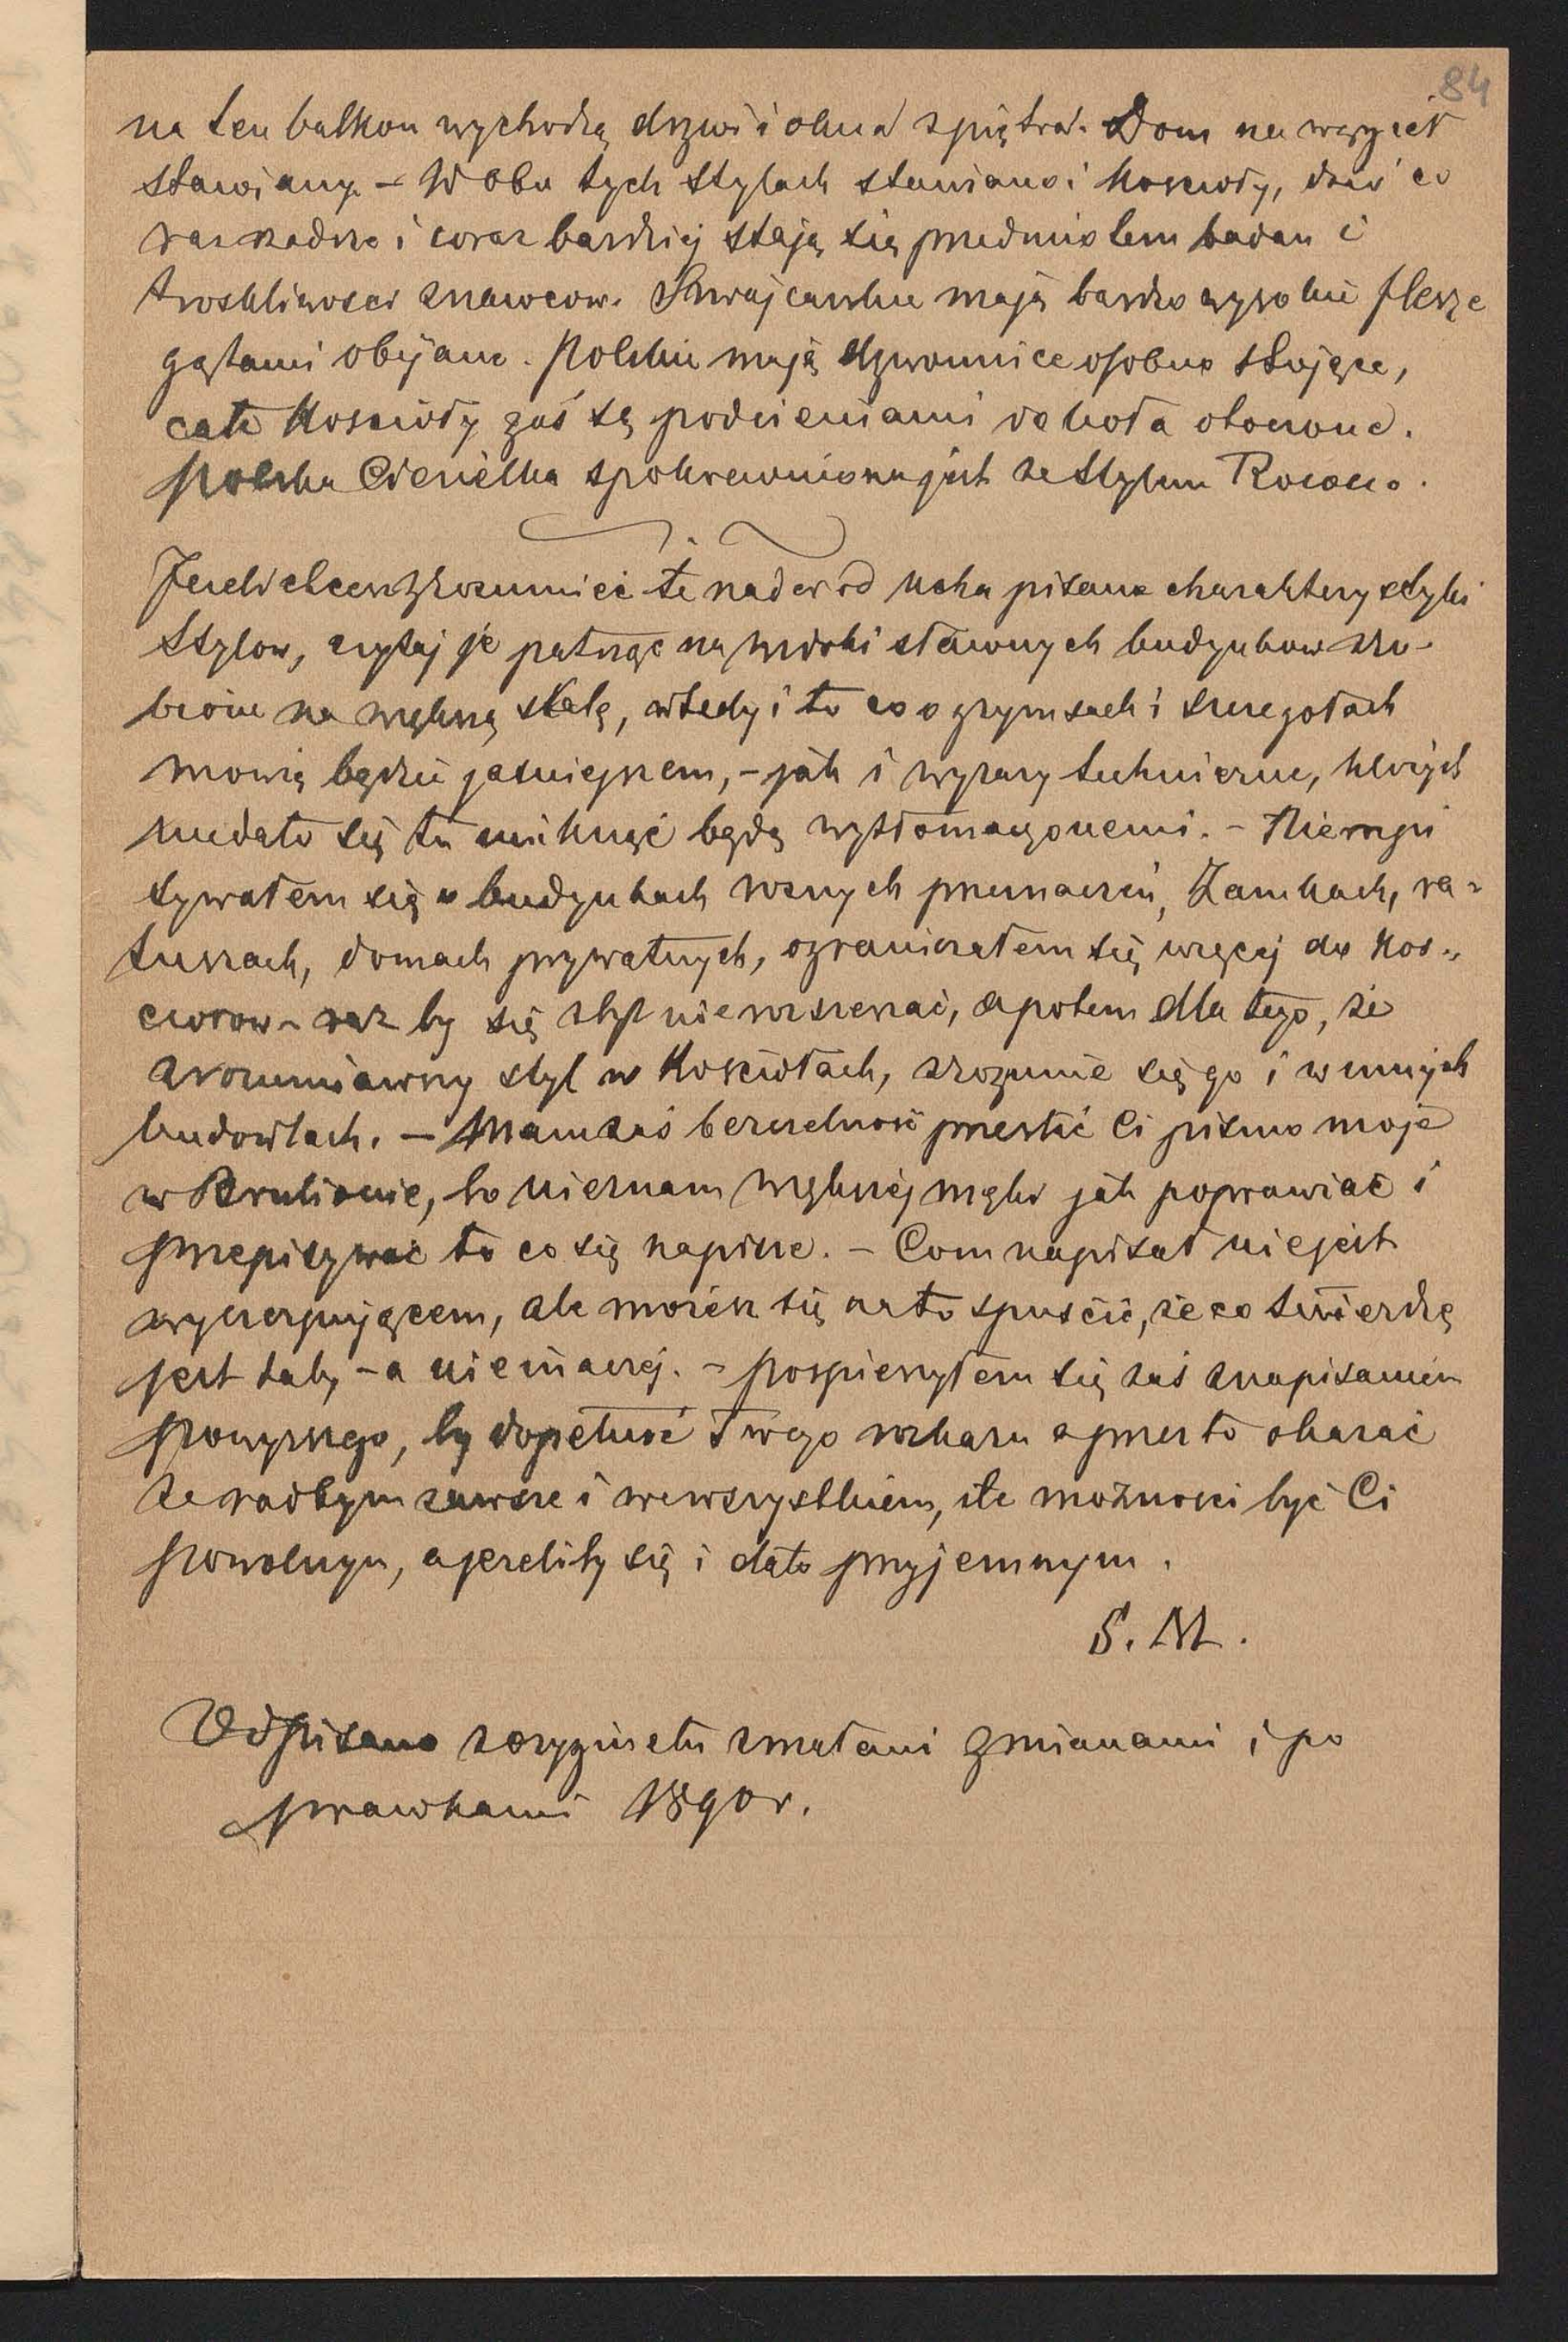 84
na ten balkon wychodzą drzwi i okna z piętra. Dom na węgieł
stawiany. – W obu tych stylach stawiano i kościoły, dziś co
raz rzadsze i coraz bardziej stają się przedmiotem badań i
troskliwości znawców. Szwajcarskie mają bardzo wysokie flesze
gątami obijane. Polskie mają dzwonnice osobno stojące,
całe kościoły zaś są podcieniami do koła otoczone.
Polska Ciesielka spokrewniona jest ze stylem Rococo.
Jeżeli chcesz zrozumieć te nader od ucha pisane charakterystyki
stylow, czytaj je patrząc na widoki sławnych budynkow zro-
bione na większą skalę, wtedy i to co o gzymsach i szczegołach
mowię będzie jaśniejszem, – jak i wyrazy techniczne, których
niedało się tu uniknąć będą wytłomaczonemi. – Niewypi
sywałem się o budynkach roznych przeznaczeń, Zamkach, ra-
tuszach, domach prywatnych, ograniczałem się więcej do Kos-
ciołow – raz by się zbyt nierozszerzać, a potem dla tego, że
zrozumiawszy styl w Kościołach, zrozumie się go i w innych
budowlach. – Mam zaś bezczelność przesłać Ci pismo moje
w Brulionie, bo nieznam większej męki jak poprawiać i
przepisywać to co się napisze. – Com napisał niejest
wyczerpującem, ale możesz się na to spuścić, że co twierdzę
jest tak, – a nieinaczej. – Pospieszyłem się zaś z napisaniem
powyższego, by dopełnić Twego rozkazu a przez to okazać
że radbym zawsze i wewszystkiem, ile możnosci być Ci
powolnym, a jeżeliby się i dało przyjemnym.
S. M.
Odpisano z oryginału z małemi zmianami i po
prawkami 1890 r.